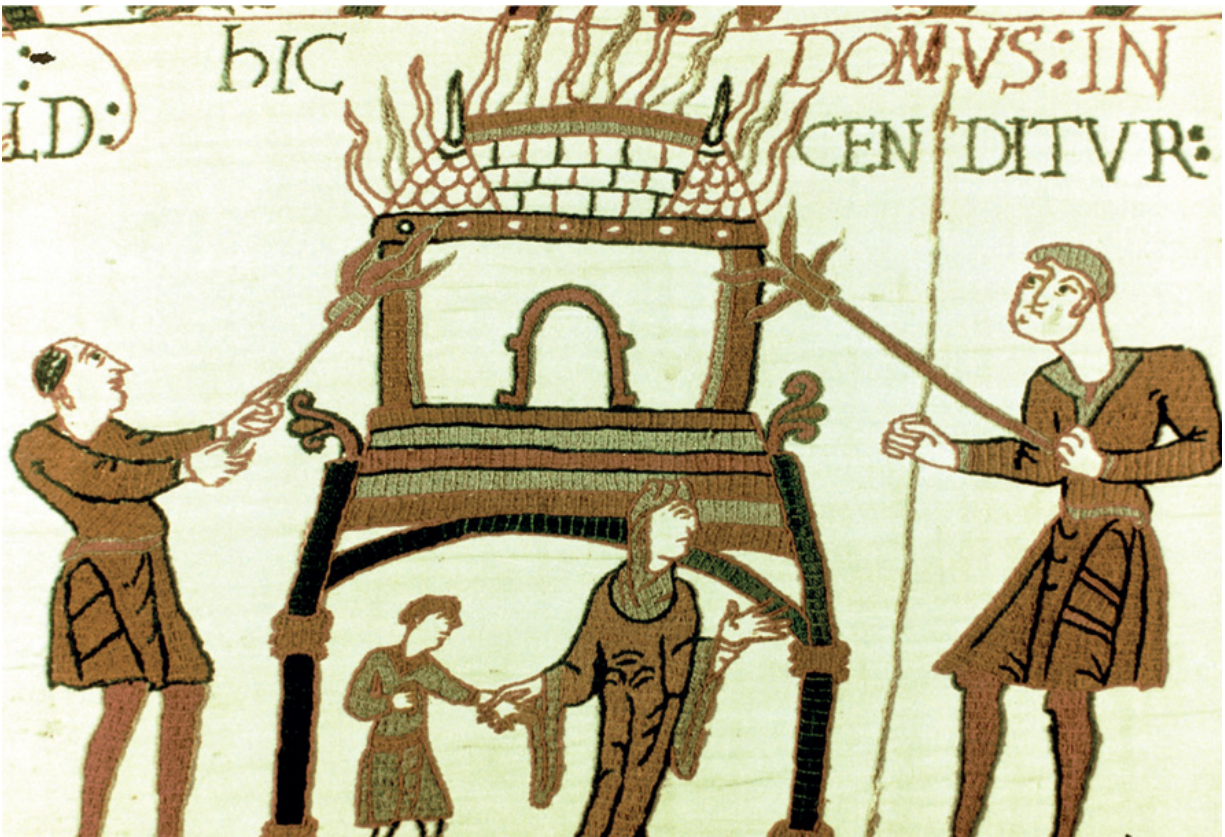 hIC DOMVS: IN
ID: CENDITVR: